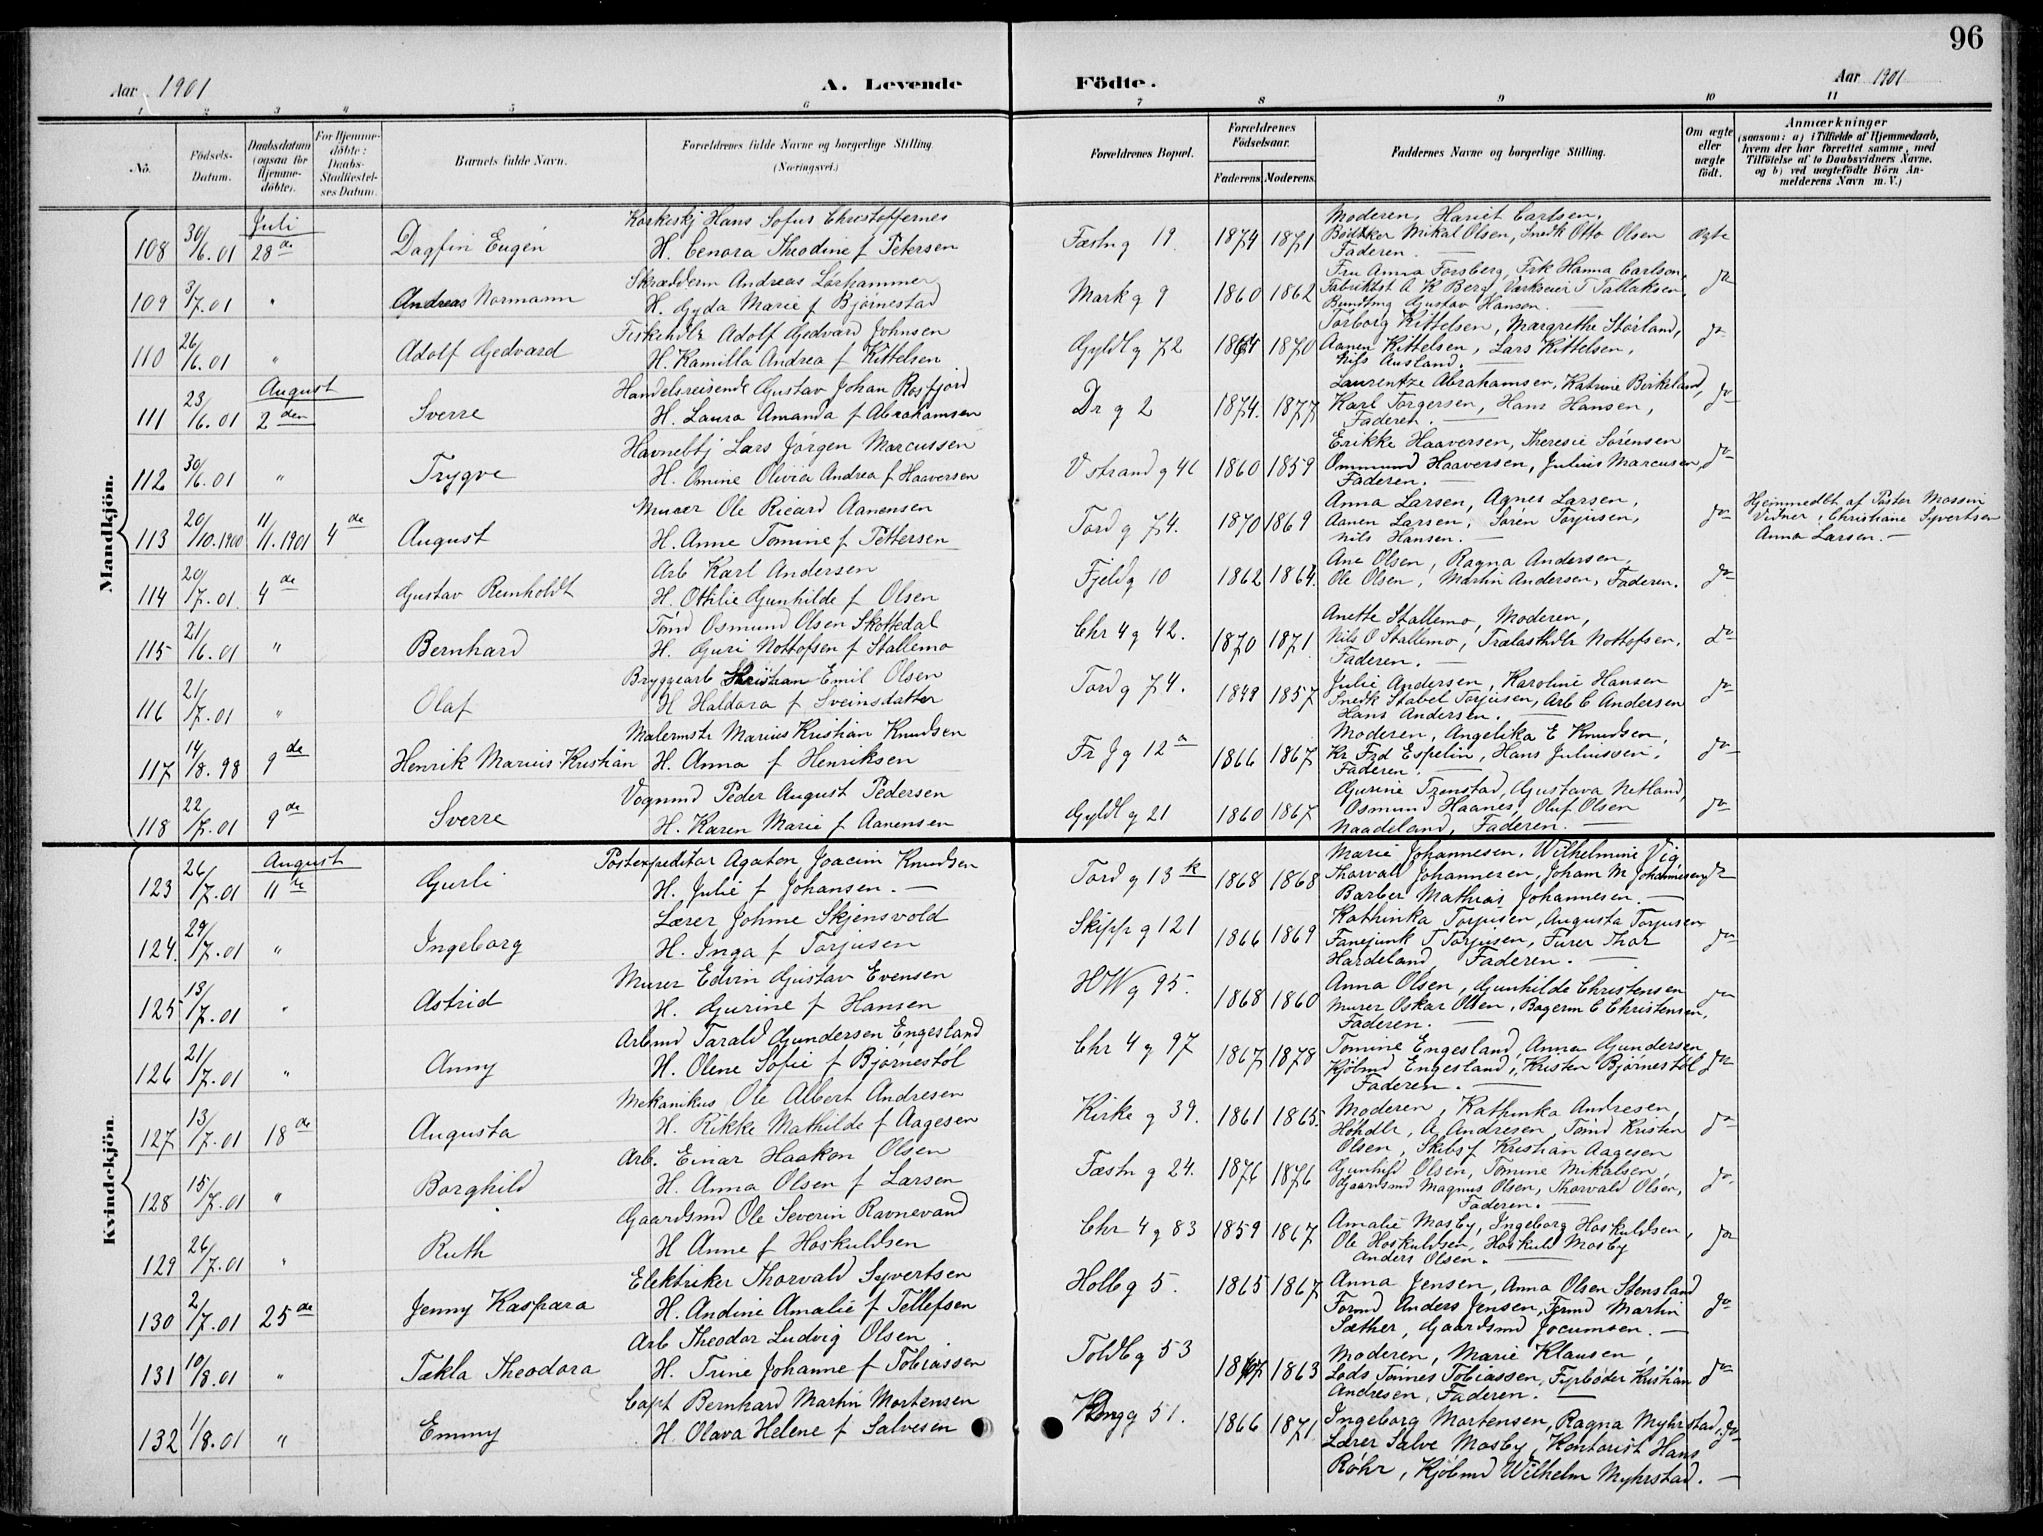 96
Aar 1901
A. Levende
Födte.
Aar 1901
1 2 3 4 5 6 7 8 9 10 11
No.
Födsels-Datum.
Daabsdatum (ogsaa for Hjemmedöbte).
For Hjemmedöbte: Daabs-Stadfæstelses Datum.
Barnets fulde Navn.
Forældrenes fulde Navne og borgerlige Stilling. (Næringsvei.)
Forældrenes Bopæl.
Forældrenes Födselsaar.
Faderens. Moderens.
Faddernes Navne og borgerlige Stilling.
Om ægte eller uægte födt.
Anmærkninger
(saasom: a) i Tilfælde af Hjemmedaab, hvem der har forrettet samme, med Tilföielse af to Daabsvidners Navne, og b) ved uægtefödte Börn Anmelderens Navn m. V.)
Mandkjön.
Juli
108 30/6.01 28de Dagfin Eugén
Korkeskj Hans Sofus Christoffernes
H. Cenora Theodine f Petersen
Fæstn g 19. 1874 1871
Moderen, Hariet Carlsen,
Bödtker Mikal Olsen, Snedk Otto Olsen
Faderen. —
Ægte
109 3/7.01 " Andreas Normann
Skrædderm Andreas Lörhammer
H. Gyda Marie f Bjørnestad
Mark g 9 1860 1862
Fru Anna Forsberg, Frk Hanna Carlson,
Fabrikbst A K Berg, Værkseier T Tallaksen,
Bundtmg Gustav Hansen.
do
110 26/6.01 " Adolf Gedvard
Fiskehdlr Adolf Gedvard Johnsen
H. Kamilla Andrea f Kittelsen
Gyldl g 72 1864 1870
Torborg Kittelsen, Margrethe Störland,
Aanen Kittelsen, Lars Kittelsen,
Nils Ausland. —
do
August
111 23/6.01 2den Sverre
Handelsreisende Gustav Johan Rosfjord
H. Laura Amanda f Abrahamsen
Dr g 2 1874. 1877
Laurentze Abrahamsen, Katrine Birkeland,
Karl Torgersen, Hans Hansen,
Faderen. —
do
112 30/6.01 " Trygve
Havnebtj Lars Jörgen Marcussen
H. Omine Olivia Andrea f Haaversen
V strand g 41 1860 1859
Erikke Haaversen, Theresie Sörensen
Ommund Haaversen, Julius Marcusen,
Faderen. —
do
113 20/10.1900 11/1.1901 4de August
Murer Ole Ricard Aanensen
H. Anne Tomine f Pettersen
Tord g 74. 1870 1869
Anna Larsen, Agnes Larsen,
Aanen Larsen, Sören Torjusen,
Nils Hansen. —
do
Hjemmedbt af Pastor Mossin
Vidner: Christiane Syvertsen
Anna Larsen. —
114 20/7.01 4de Gustav Reinholdt
Arb Karl Andersen
H. Othilie Gunhilde f Olsen
Fjeld g 10 1862 1864.
Ane Olsen, Ragna Andersen,
Ole Olsen, Martin Andersen, Faderen.
do
115 21/6.01 " Bernhard
Tömd Osmund Olsen Skottedal
H. Guri Nottofsen f Stallemo
Chr 4 g 42. 1870 1871
Anette Stallemo, Moderen,
Nils O Stallemo, Trælasthdlr Nottofsen,
Faderen. —
do
116 21/7.01 " Olaf
Bryggearb Kristian Emil Olsen
H Haldora f Sveinsdatter
Tord g 74. 1849 1857
Julie Andersen, Karoline Hansen
Snedk Stabel Torjusen, Arb C Andersen
Hans Andersen. —
do
117 14/8.98 9de Henrik Marius Kristian
Malermstr Marius Kristian Knudsen
H. Anna f Henriksen
Fr J g 12a 1866 1867
Moderen, Angelika E Knudsen,
Kr Frd Espelin, Hans Juliussen,
Faderen. —
do
118 22/7.01 9de Sverre
Vognmd Peder August Pedersen
H. Karen Marie f Aanensen
Gyldl g 21 1860 1867
Gurine Trenstad, Gustava Netland,
Osmund Haanes, Oluf Olsen
Naadeland, Faderen. —
do
Kvindekjön.
August
123 26/7.01 11te Gurli
Postexpeditor Agaton Joacim Knudsen
H. Julie f Johansen. —
Tord g 13k 1868 1868
Marie Johannesen, Wilhelmine Vig,
Thorvald Johannesen, Joham M Johannesen,
Barber Mathias Johannesen. —
do
124. 29/7.01 " Ingeborg
Lærer Johme Skjensvold
H. Inga f Torjusen
Skippr g 121 1866 1869
Kathinka Torjusen, Augusta Torjusen
Fanejunk T Torjusen, Furer Thor
Hardeland Faderen. —
do
125 13/7.01 " Astrid
Murer Edvin Gustav Evensen
H. Gurine f Hansen
HW g 95. 1868 1860
Anna Olsen, Gunhilde Christensen
Murer Oskar Olsen, Bagerm C Christensen,
Faderen. —
do
126 21/7.01 " Anny
Arbmd Tarald Gundersen Engesland
H. Olene Sofie f Bjørnestöl
Chr 4 g 97 1867 1878
Tomine Engesland, Anna Gundersen
Kjöbmd Engesland, Kristen Bjørnestöl
Faderen. —
do
127 13/7.01 18de Augusta
Mekanikus Ole Albert Andresen
H. Rikke Mathilde f Aagesen
Kirke g 39. 1861 1865.
Moderen, Kathinka Andresen,
Höhdlr, A Andresen, Tömd Kristen
Olsen, Skibsf Kristian Aagesen
do
128 15/7.01 " Borghild
Arb. Einar Haakon Olsen
H. Anna Olsen f Larsen
Fæstn g 24. 1876 1876
Gunhild Olsen, Tomine Mikalsen,
Gaardsmd Magnus Olsen, Thorvald Olsen,
Faderen. —
do.
129 26/7.01 " Ruth
Gaardsmd Ole Severin Ravnevand
H Anne f Hoskuldsen
Chr 4 g 83 1859 1867
Amalie Mosby, Ingeborg Hoskuldsen,
Ole Hoskuldsen, Hoskuld Mosby
Anders Olsen. —
do
130 2/7.01 25de Jenny Kaspara
Elektriker Thorvald Syvertsen
H. Andine Amalie f Tellefsen
Holb g 5. 1865 1867
Anna Jensen, Anna Olsen Stensland
Formd Anders Jensen, Formd Martin
Sæther, Gaardsmd Jocumsen. —
do
131 10/8.01 " Tækla Theodora
Arb Theodor Ludvig Olsen
H. Trine Johanne f Tobiassen
Toldb g 53 1867 1863
Moderen, Marie Klausen,
Lods Tönnes Tobiassen, Fyrböder Kristian
Andresen, Faderen. —
do
132 1/8.01 " Emmy
Capt Bernhard Martin Mortensen
H. Olava Helene f Salvesen
Kong g 51. 1866 1871
Ingeborg Mortensen, Ragna Myhrstad,
Lærer Salve Mosby, Kontorist Hans
Röhr, Kjöbmd Wilhelm Myhrstad. —
do